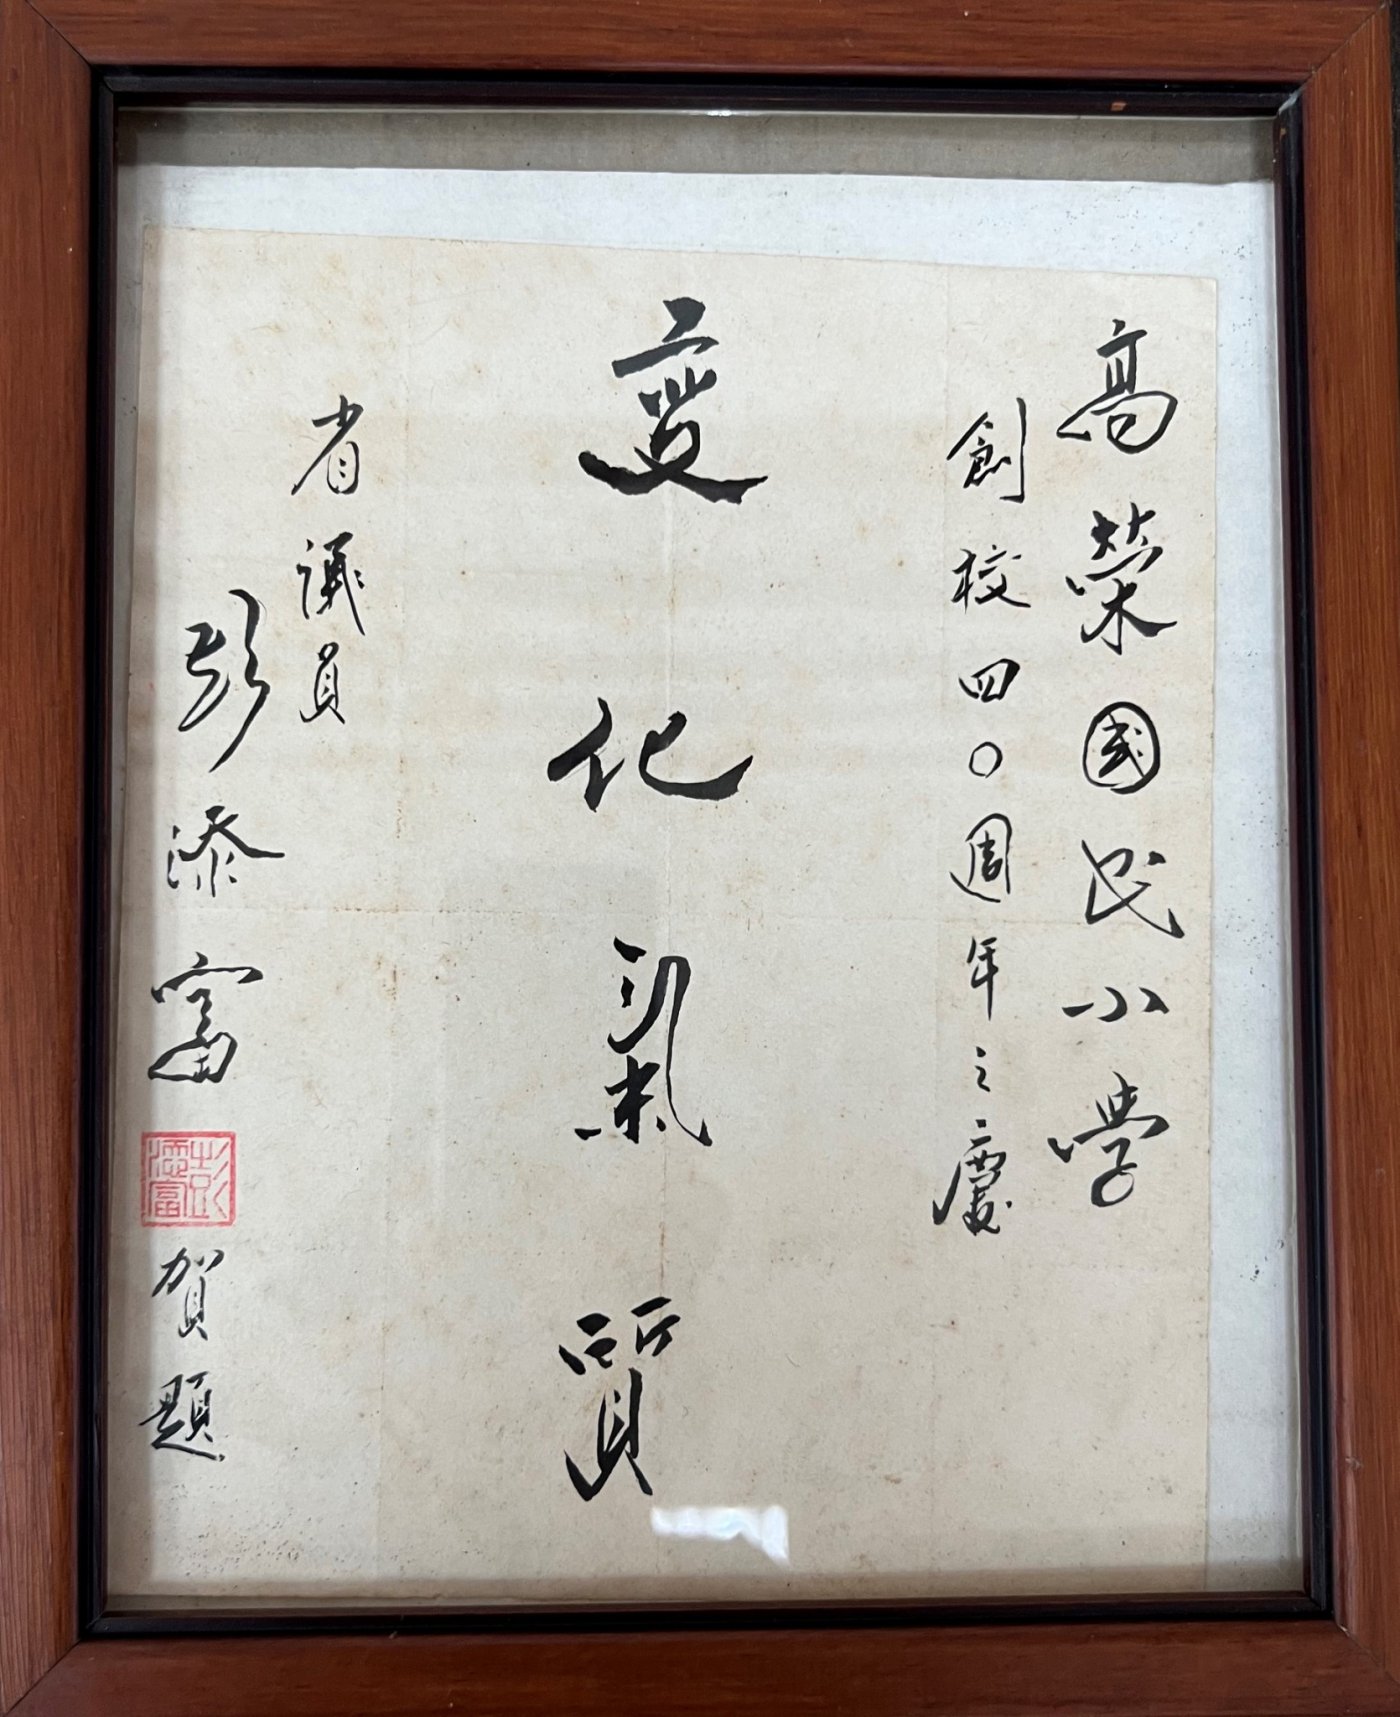 高榮國民小學
創校四〇週年之慶
變化氣質
省議員
彭添富
彭添富
賀題